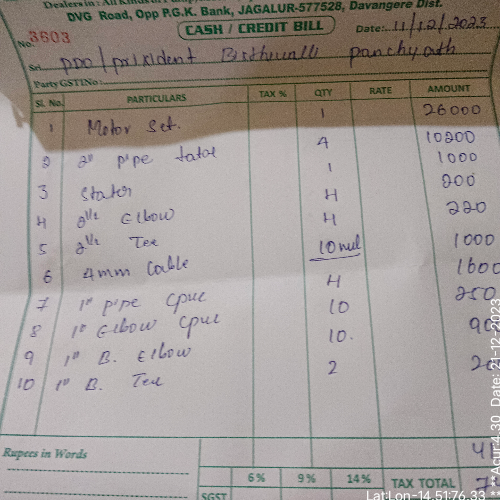 Dealers in: All Kinds of
DVG Road, Opp P.G.K. Bank, JAGALUR-577528, Davangere Dist.
No. 3603 CASH / CREDIT BILL Date: 11/12/2023
Sri. PDO/ panchyath
Party GSTINo:
Sl. No. PARTICULARS TAX % QTY RATE AMOUNT
1 Motor Set. 1 26000
2 2" pipe 4 10200
3 Stater 1 1000
4 2½ Elbow H 200
5 2½ Tee H 220
6 4mm Cable 10 1000
7 1" pipe cpvc H 1600
8 1" Elbow cpvc 10 250
9 1" B. Elbow 10. 90
10 1" B. Tee 2 20
Rupees in Words
6% 9% 14% TAX TOTAL
SGST
Lat:Lon-14.51:76.33
Acur:4.30, Date: 21-12-2023